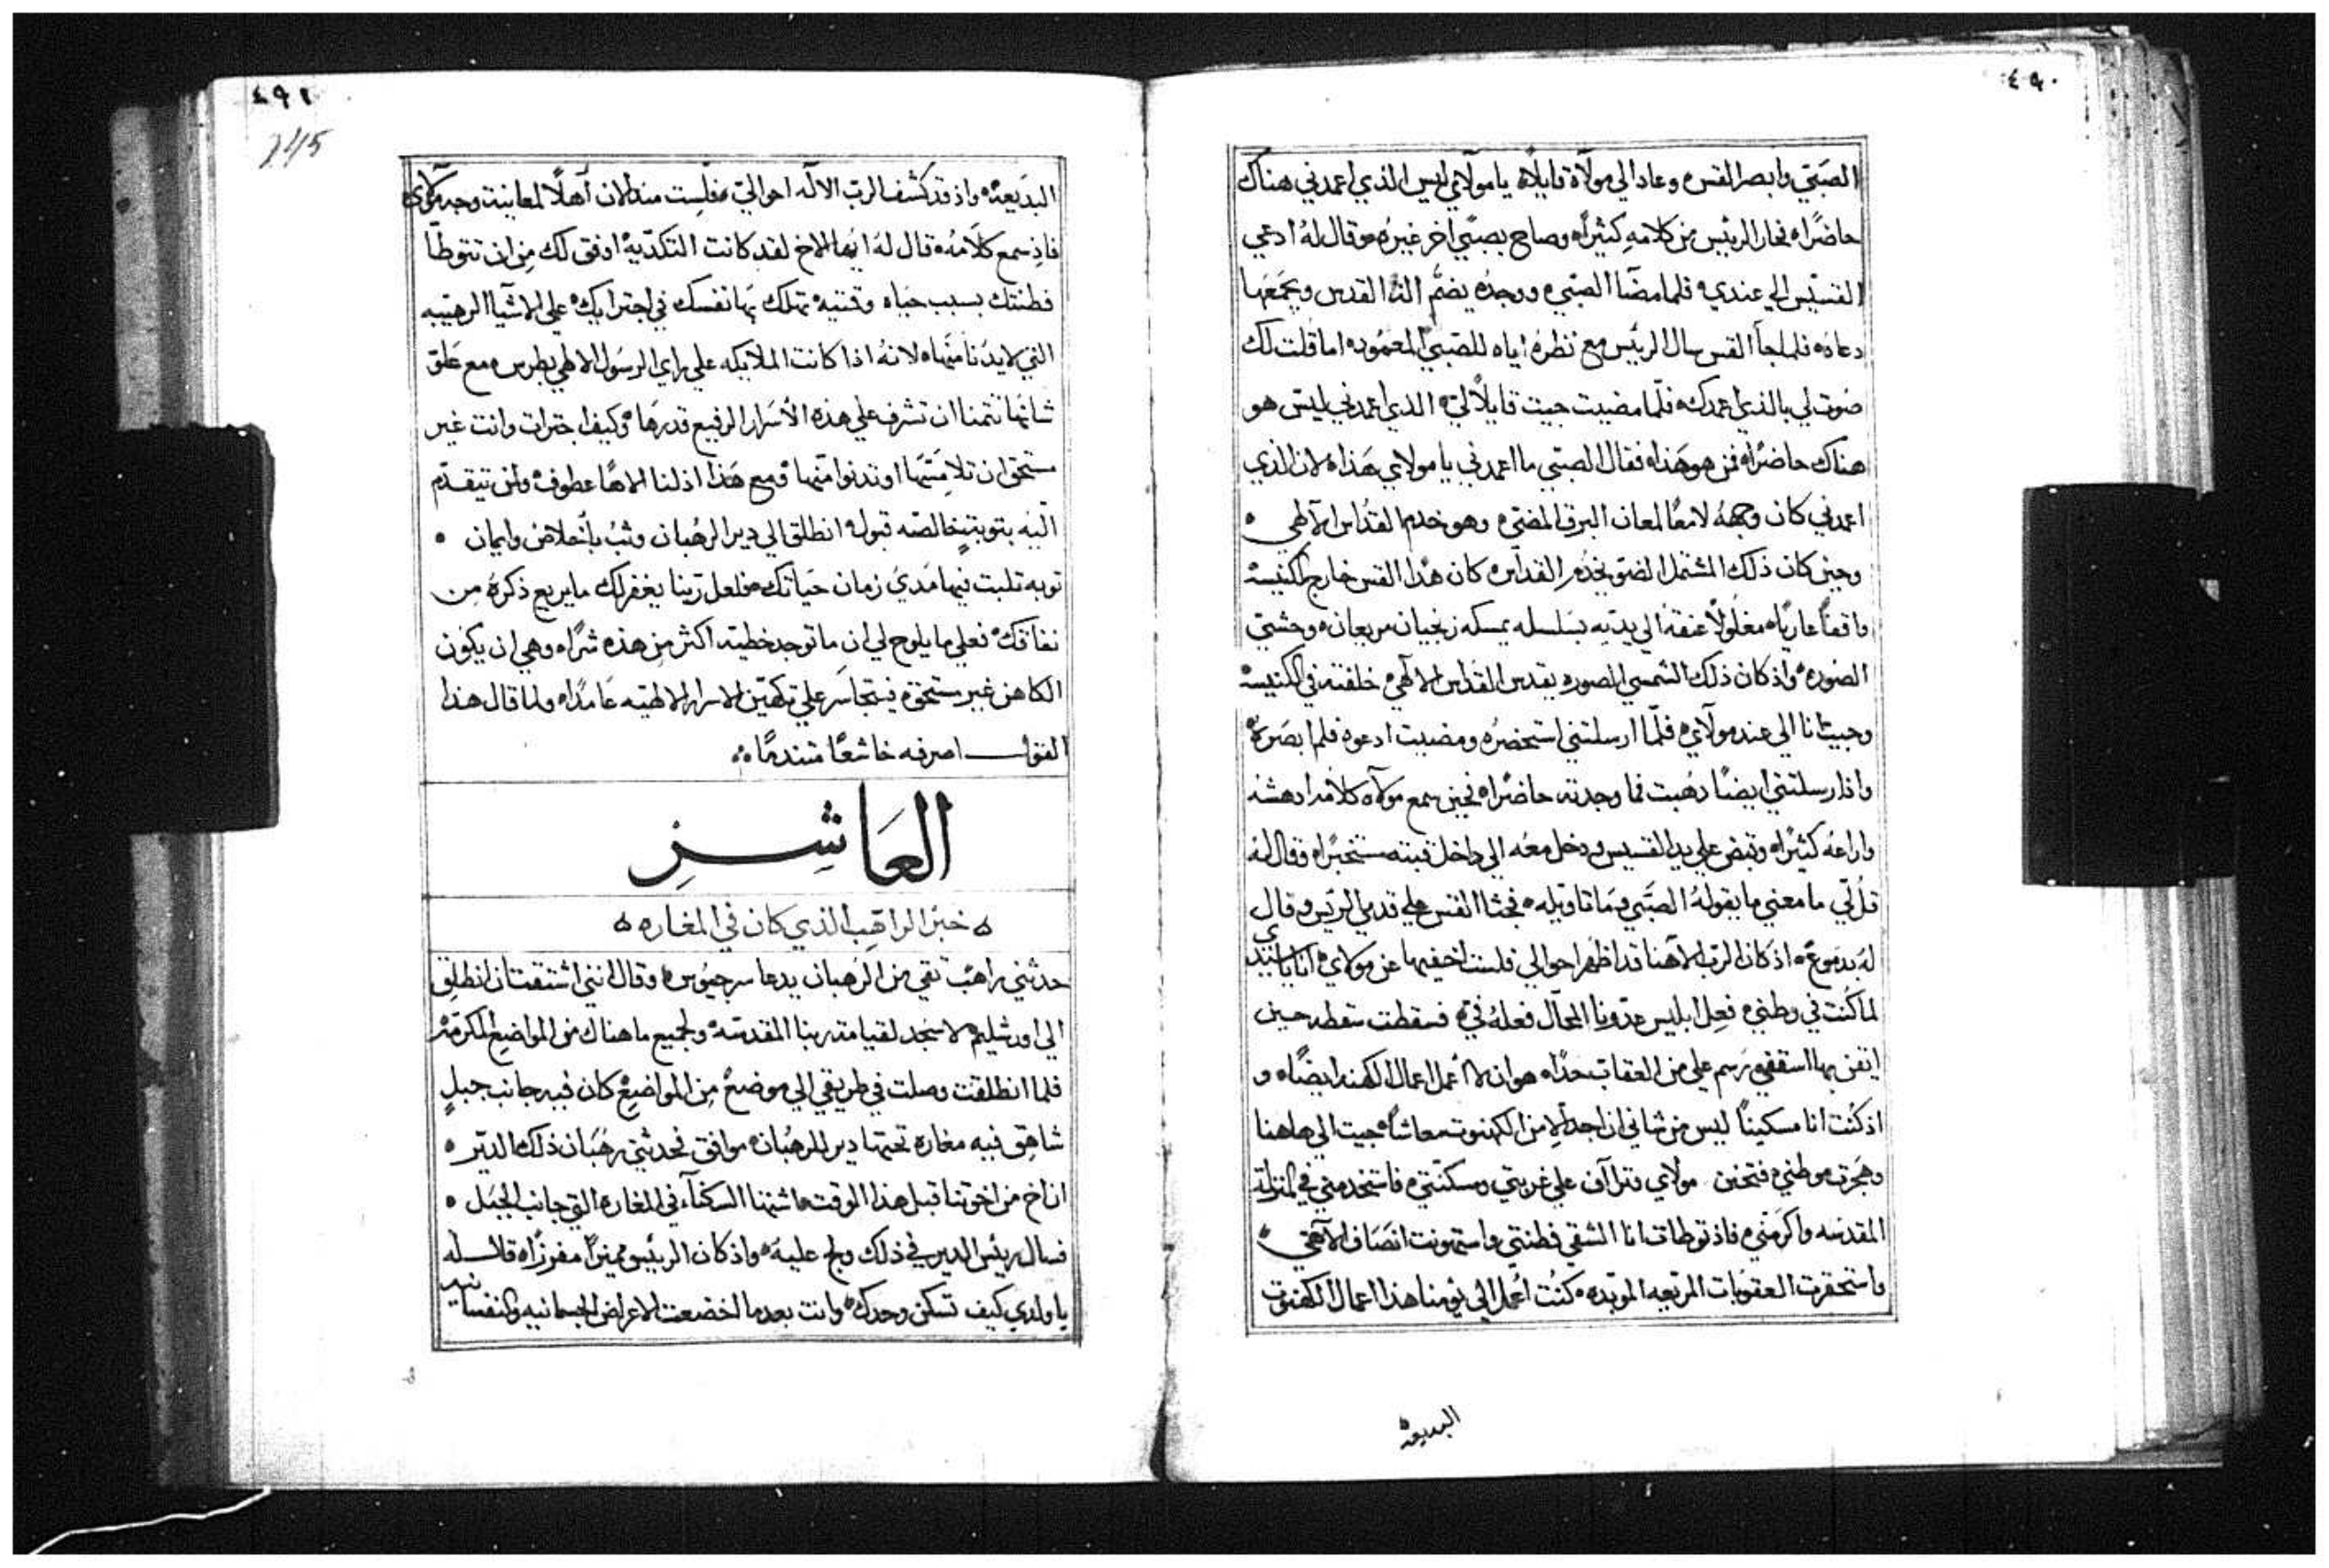 ٤٩٠
الصَبّي وابصر القس ه وعاد الي مولاهُ قايلاً ه يا مولاي ليس الذي اعمدني هناك
حاضرًا ه فحار الرئيس من كلامهِ كثيرًا ه وصاح بصبّي اخر غيرُه وقال لهُ ادعي
القسّيس الي عندي ه فلما مضّا الصبّي ه ووجدُه يضمُّ القدس ويجمَعَها
دعاهُ ه فلما جآ القس سال الرئيس مع نظرهُ اياه للصبّي المعمُود ه اما قلت لك
صُوت لي بالذي اعمدك ه فلّما مضيت جيت قايلاً لي ه الذي اعمدني ليس هو
هناك حاضرًا ه فمن هو هَذا ه فقال الصبّي ما اعمدني يا مولاي هَذا ه لان الذي
اعمدني كان وجههُ لامعًا لمعان البرق المضّي ه وهو خدم القدّاس الالهي ه
وحين كان ذلك المشتمل الضو يخدُم القداس ه كان هذا القس خارج الكنيسة
واقفًا عاريًا ه مغلُولاً عنقهُ الي يديه بسَلسله يمسكه زنجيان مريعان ه وحشتي
الصُوره ه واذ كان ذلك الشمسي الصوره يقدس القدّاس الالهي ه خلفته في الكنيسة
وجيت انا الي عند مولاي ه فلّما ارسلتني استحضرُه ومضيت ادعوه فلم ابصَرهُ
واذ ارسلتني ايضًا دهبت فما وجدته حاضرًا ه فحين سمع مولاه كلامه ادهشه
واراعهُ كثيرًا ه وقبض علي يد القسيس ودخل معه الي داخل قبته مستخبرًا ه وقال لهُ
قُل لي ما معني ما يقولهُ الصَبّي وما تاويله ه فجثا القس علي قدمي الريّس وقال
لهُ بدموع ه اذ كان الرّب الاهنا قد اظهَر احوالي فلست اخفيها عن مولاي ه انا يا سَيدي
لما كنُت في وطني ه فعِل ابليس عدّونا المحّال فعلهُ فيّ ه فسقطت سقطه حين
ايقن بها اسقفي رَسم علي من العقاب حدًا ه هو ان لا اعمل اعمال الكهنه ايضًا ه و
اذ كنُت انا مسكينًا ليس من شاني ان اجد الا من الكهنوت معاشًا ه جيت الي هاهنا
وهَجرت موطني ه فتحنن مولاي وترآف علي غربتي ومسكنتي ه فاستخدمني في المنزلة
المقدسَه واكرَمني ه فاذ توطات انا الشقي فطنتي واستهونت انصَاف الالهّي ه
واستحقرت العقوبات المرّيعه الموّبده ه كنُت اعمل الي يُومنا هذا اعمال الكهنوت
البديعة
٤٩١
245
البدَيعهْ ه واذ قد كشف الرب الاله احوالي ه فلِست منذ الان آهلاً لمعاينة وجه مولاي
فاذ سمع كلاَمهُ ه قال لهُ ايُها الاخ لقد كانت التكدّيهْ اوفق لك مِن ان تتوطّا
فطنتك بسبب حياه وقتتيه تهلك بها نفسك في اجترايك علي الاشيآ الرهيَبه
التي لا يدُنا منَها ه لانهُ اذا كانت الملايكه علي راي الرسُول الالهي بطرس ه مع عَلوّ
شانها تتمنا ان تشرف علي هذه الأسَرار الرفيع قدرهَا ه وكيف اجترات وانت غير
مستحق ان تلامِسَها او تدنوا منَها ه ومع هَذا اذ لنا الاهًا عطوف ه ولمن يتقدَم
الَيه بتوبة خالصَه قبول ه انطلق الي دير الرهُبان وتبُ باخلاص وايمان ه
توبه تلبث فيها مَدي زمان حيَاتك ه فلعل رّبنا يغفر لك ما يريع ذكرهُ مِن
نفاقك ه فعلي ما يلوح لي ان ما توجد خطيئة اكثر من هذه شرًا ه وهي ان يكوُن
الكاهن غير مستحق ه فيتجاسَر علي تكهين الاسرار الالهيَه عَامدًا ه ولما قال هذا
القول اصرفه خاشعًا متندمًا ه ه
العَاشِرِ
ه خبر الراهب الذي كان في المغاره ه
حدثني راهبٌ تقي من الرَهبان يدعا سرجيُوس ه وقال انني اشتقت ان انطلق
الي اورشليم ه لاسَجد لقيامة ربنا المقدسَه ه ولجميع ما هناك من المواضع المكرّمة
فلما انطلقت وصلت في طريقي الي موضعْ مِن المواضعِ كان فيه جانب جبلٍ
شاهق فيه مغاره تحتها دير للرهُبان ه موافق فحدثني رهُبَان ذلك الديّر ه
ان اخ من اخوتنا قبل هذا الوقت ه اشتها السكنآء في المغاره التي جانب الجبَل ه
فسال ريئس الدير في ذلك ولج عليه ه واذ كان الرئيس مميزًا مفرزًا ه قال له
يا ولدي كيف تسكن وحدك ه وانت بعد ما اخضعت الاعراض الجسمانيه والنفسانيه